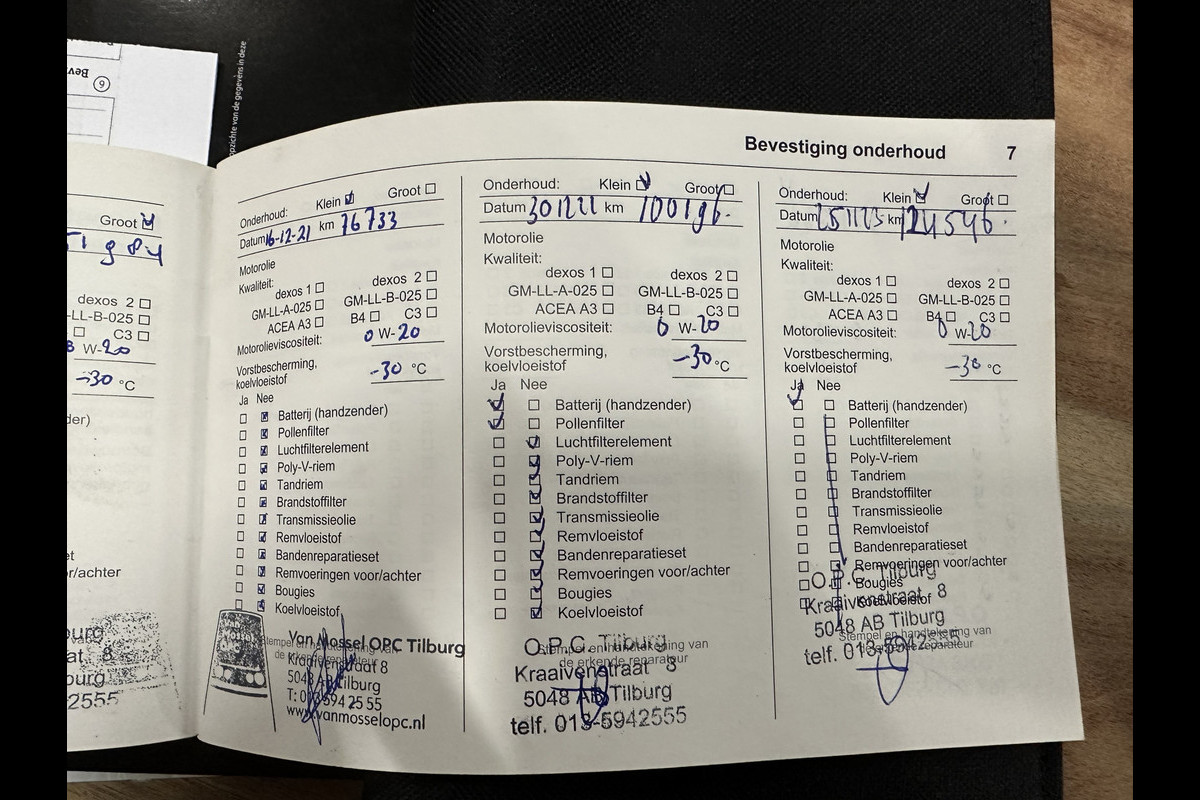 opzichte van de gegevens in deze
6
Bevestiging onderhoud 7
Groot
dexos 2
LL-B-025
C3
W-20
-30 °C
der)
et
r/achter
2555
Onderhoud: Klein Groot
Datum 16-12-21 km 76733
Motorolie
Kwaliteit:
dexos 1 dexos 2
GM-LL-A-025 GM-LL-B-025
ACEA A3 B4 C3
Motorolieviscositeit: 0 W-20
Vorstbescherming,
koelvloeistof -30 °C
Ja Nee
Batterij (handzender)
Pollenfilter
Luchtfilterelement
Poly-V-riem
Tandriem
Brandstoffilter
Transmissieolie
Remvloeistof
Bandenreparatieset
Remvoeringen voor/achter
Bougies
Koelvloeistof
Stempel en handtekening van
de erkende reparateur
Van Mossel OPC Tilburg
Kraaivenstraat 8
5048 AB Tilburg
T: 013 594 25 55
www.vanmosselopc.nl
Onderhoud: Klein Groot
Datum 301222 km 100196.
Motorolie
Kwaliteit:
dexos 1 dexos 2
GM-LL-A-025 GM-LL-B-025
ACEA A3 B4 C3
Motorolieviscositeit: 0 W-20
Vorstbescherming,
koelvloeistof -30 °C
Ja Nee
Batterij (handzender)
Pollenfilter
Luchtfilterelement
Poly-V-riem
Tandriem
Brandstoffilter
Transmissieolie
Remvloeistof
Bandenreparatieset
Remvoeringen voor/achter
Bougies
Koelvloeistof
Stempel en handtekening van
de erkende reparateur
O.P.C. Tilburg
Kraaivenstraat 8
5048 AB Tilburg
telf. 013-5942555
Onderhoud: Klein Groot
Datum 251123 km 124546.
Motorolie
Kwaliteit:
dexos 1 dexos 2
GM-LL-A-025 GM-LL-B-025
ACEA A3 B4 C3
Motorolieviscositeit: 0 W-20
Vorstbescherming,
koelvloeistof -30 °C
Ja Nee
Batterij (handzender)
Pollenfilter
Luchtfilterelement
Poly-V-riem
Tandriem
Brandstoffilter
Transmissieolie
Remvloeistof
Bandenreparatieset
Remvoeringen voor/achter
Bougies
Koelvloeistof
Stempel en handtekening van
de erkende reparateur
O.P.C. Tilburg
Kraaivenstraat 8
5048 AB Tilburg
telf. 013-5942555